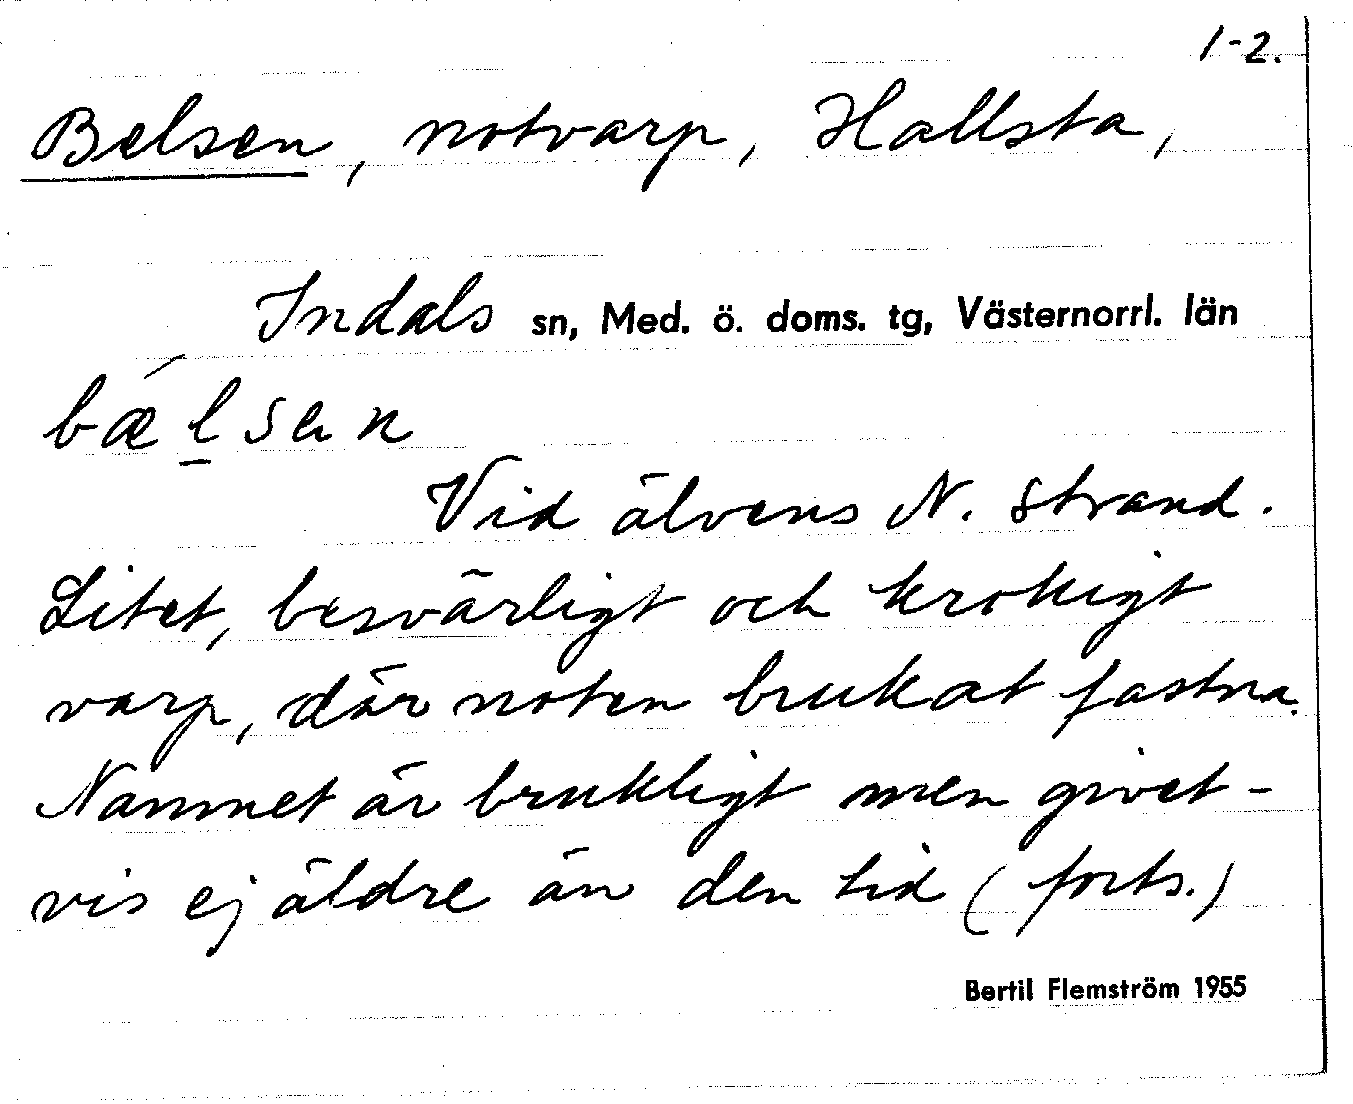 1-2.
Belsen, notvarp, Hallsta,
Indals sn, Med. ö. doms. tg, Västernorrl. län
bǽl̲sen
Vid älvens N. strand.
Litet, besvärligt och krokigt
varp, där noten brukat fastna.
Namnet är brukligt men givet-
vis ej äldre än den tid (forts.)
Bertil Flemström 1955